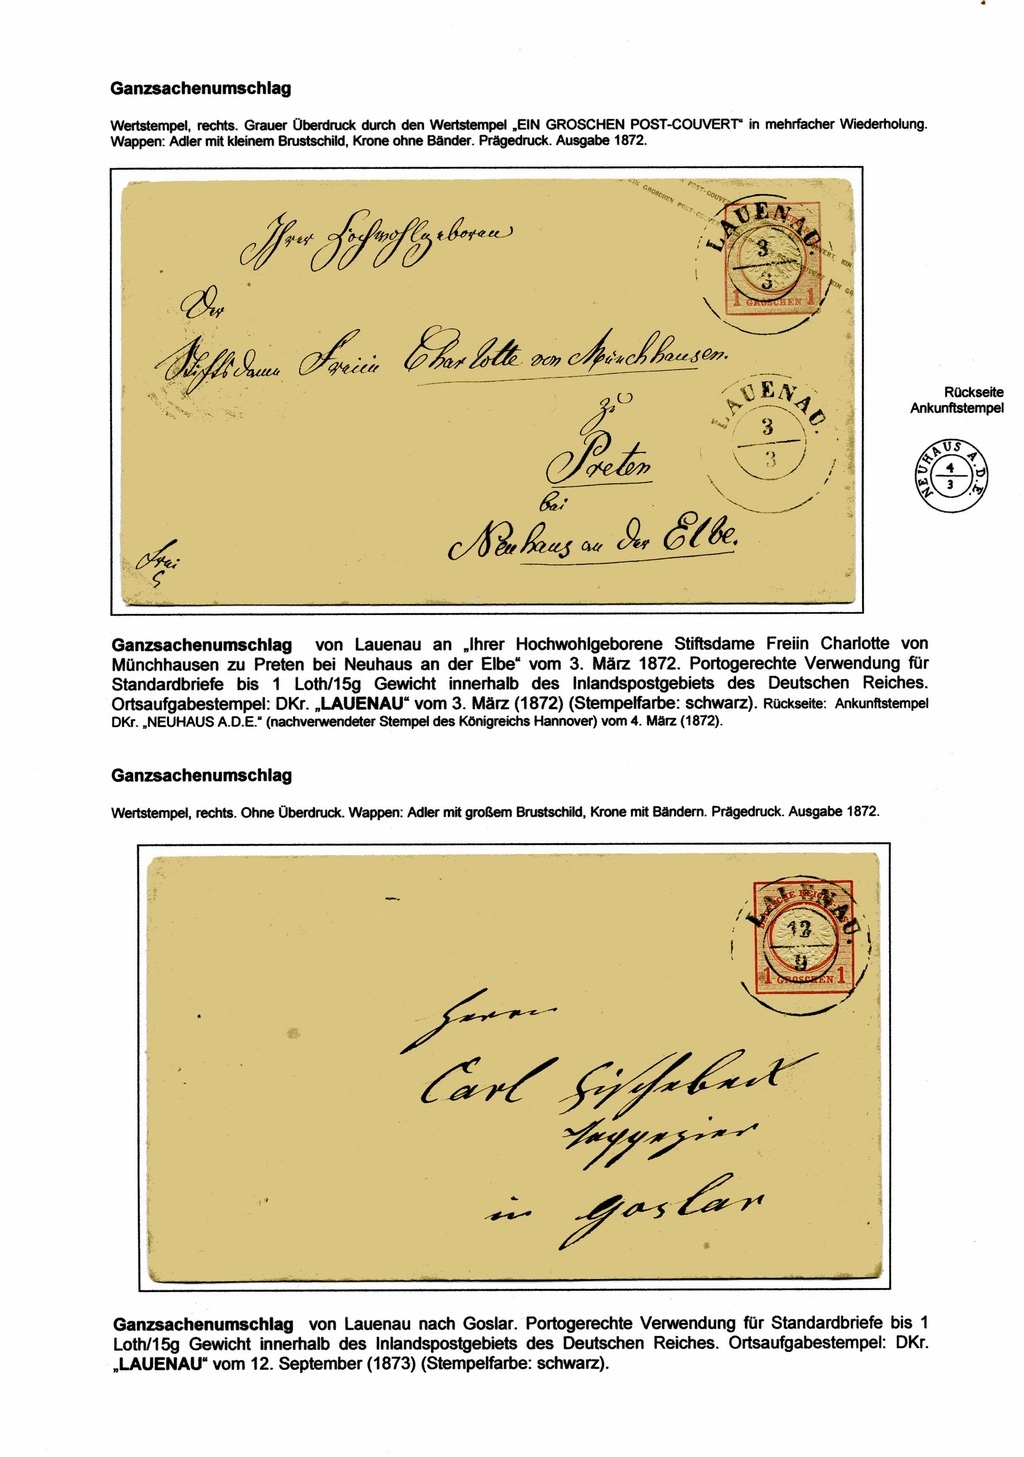 Ganzsachenumschlag
Wertstempel, rechts. Grauer Überdruck durch den Wertstempel „EIN GROSCHEN POST-COUVERT" in mehrfacher Wiederholung.
Wappen: Adler mit kleinem Brustschild, Krone ohne Bänder. Prägedruck. Ausgabe 1872.
EIN GROSCHEN POST-COUVERT
LAUENAU.
3
3
1 GROSCHEN 1
Ihrer Hochwohlgeboren
Der
Stiftsdame Freiin Charlotte von Münchhausen.
zu
Preten
bei
Neuhaus an der Elbe.
Frei
LAUENAU.
3
3
Rückseite
Ankunftstempel
NEUHAUS A.D.E.
4
3
Ganzsachenumschlag von Lauenau an „Ihrer Hochwohlgeborene Stiftsdame Freiin Charlotte von
Münchhausen zu Preten bei Neuhaus an der Elbe" vom 3. März 1872. Portogerechte Verwendung für
Standardbriefe bis 1 Loth/15g Gewicht innerhalb des Inlandspostgebiets des Deutschen Reiches.
Ortsaufgabestempel: DKr. „LAUENAU" vom 3. März (1872) (Stempelfarbe: schwarz). Rückseite: Ankunftstempel
DKr. „NEUHAUS A.D.E." (nachverwendeter Stempel des Königreichs Hannover) vom 4. März (1872).
Ganzsachenumschlag
Wertstempel, rechts. Ohne Überdruck. Wappen: Adler mit großem Brustschild, Krone mit Bändern. Prägedruck. Ausgabe 1872.
LAUENAU.
12
9
1 GROSCHEN 1
Herrn
Carl Fischebeck
Tappezier
in Goslar
Ganzsachenumschlag von Lauenau nach Goslar. Portogerechte Verwendung für Standardbriefe bis 1
Loth/15g Gewicht innerhalb des Inlandspostgebiets des Deutschen Reiches. Ortsaufgabestempel: DKr.
„LAUENAU" vom 12. September (1873) (Stempelfarbe: schwarz).